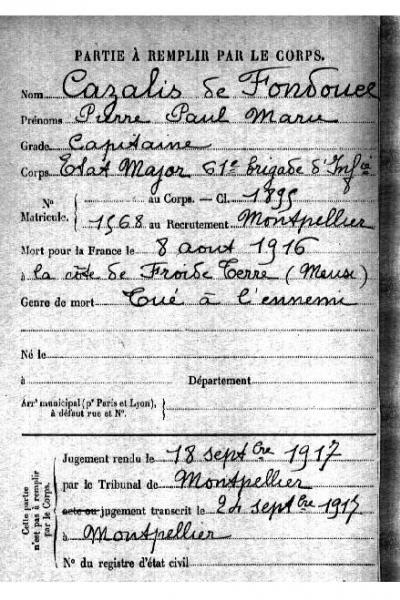 PARTIE À REMPLIR PAR LE CORPS.
Nom Cazalis de Fondouce
Prénoms Pierre Paul Marie
Grade Capitaine
Corps Etat Major 61e brigade d'Infie
N° Matricule. { au Corps. — Cl. 1899
1568 au Recrutement Montpellier
Mort pour la France le 8 aout 1916
à la côte de Froide Terre (Meuse)
Genre de mort Tué à l'ennemi
Né le
à Département
Arrt municipal (pr Paris et Lyon), à défaut rue et N°.
Cette partie n'est pas à remplir par le Corps.
Jugement rendu le 18 septbre 1917
par le Tribunal de Montpellier
acte ou jugement transcrit le 24 septbre 1917
à Montpellier
N° du registre d'état civil